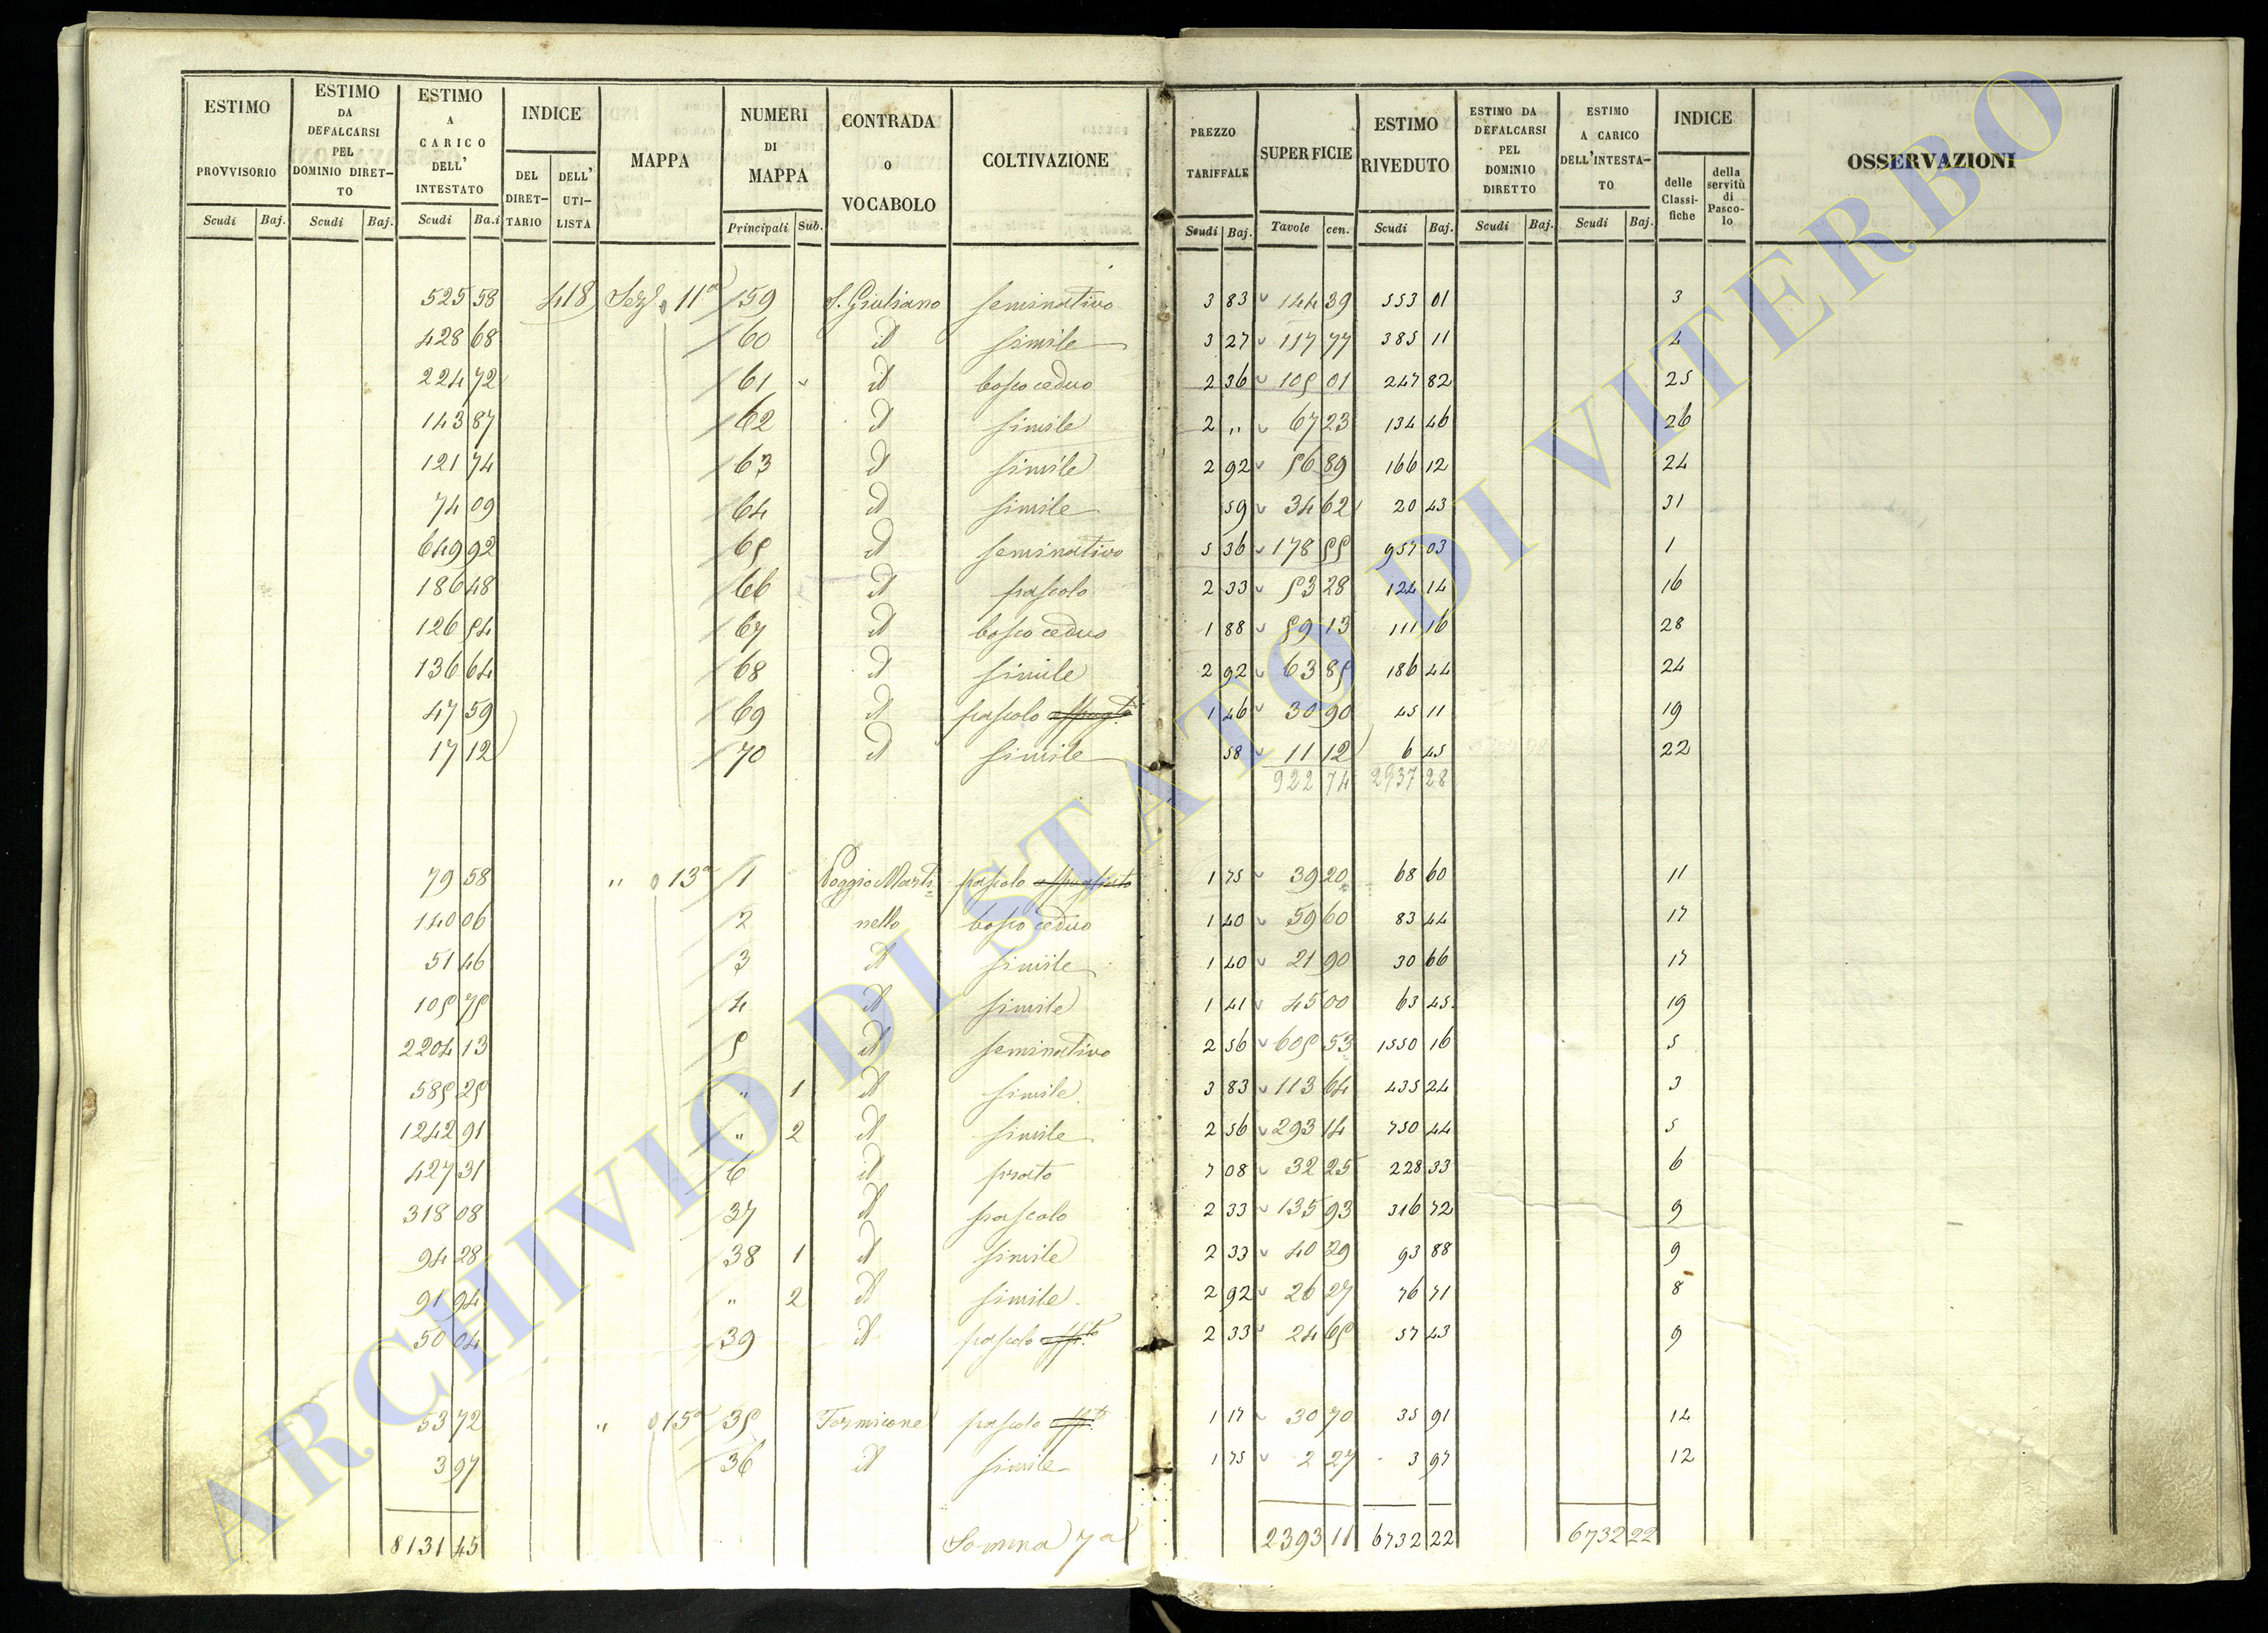 ESTIMO PROVVISORIO | ESTIMO DA DEFALCARSI PEL DOMINIO DIRET-TO | ESTIMO A CARICO DELL' INTESTATO | INDICE | MAPPA | NUMERI DI MAPPA | CONTRADA o VOCABOLO | COLTIVAZIONE | PREZZO TARIFFALE | SUPERFICIE | ESTIMO RIVEDUTO | ESTIMO DA DEFALCARSI PEL DOMINIO DIRETTO | ESTIMO A CARICO DELL'INTESTA-TO | INDICE | OSSERVAZIONI
DEL DIRET-TARIO | DELL' UTI-LISTA | delle Classi-fiche | della servitù di Pasco-lo
Scudi | Baj. | Scudi | Baj. | Scudi | Ba.i | Principali | Sub. | Scudi | Baj. | Tavole | cen. | Scudi | Baj. | Scudi | Baj. | Scudi | Baj.
525 58 418 Sez. 11a 59 S. Giuliano seminativo 3 83 144 39 553 01 3
428 68 60 id simile 3 27 117 77 385 11 4
224 72 61 id bosco ceduo 2 36 105 01 247 82 25
143 87 62 id simile 2 „ 67 23 134 46 26
121 74 63 id simile 2 92 56 89 166 12 24
74 09 64 id simile 59 34 62 20 43 31
649 92 65 id seminativo 5 36 178 55 957 03 1
186 48 66 id pascolo 2 33 53 28 124 14 16
126 54 67 id bosco ceduo 1 88 59 13 111 16 28
136 64 68 id simile 2 92 63 85 186 44 24
47 59 69 id pascolo 1 46 30 90 45 11 19
17 12 70 id simile 58 11 12 6 45 22
922 74 2937 28
79 58 „ 13a 1 Poggio Marti= pascolo appogliato 1 75 39 20 68 60 11
140 06 2 nello bosco ceduo 1 40 59 60 83 44 17
51 46 3 id simile 1 40 21 90 30 66 17
105 75 4 id simile 1 41 45 00 63 45 19
2204 13 5 id seminativo 2 56 605 53 1550 16 5
585 25 „ 1 id simile 3 83 113 64 435 24 3
1242 91 „ 2 id simile 2 56 293 14 750 44 5
427 31 6 id prato 7 08 32 25 228 33 6
318 08 37 id pascolo 2 33 135 93 316 72 9
94 28 38 1 id simile 2 33 40 29 93 88 9
91 94 „ 2 id simile 2 92 26 27 76 71 8
50 04 39 id pascolo 2 33 24 65 57 43 9
53 72 „ 15a 35 Formicone pascolo 1 17 30 70 35 91 14
3 97 36 id simile 1 75 2 27 3 97 12
8131 45 Somma 7a 2393 11 6732 22 6732 22
ARCHIVIO DI STATO DI VITERBO